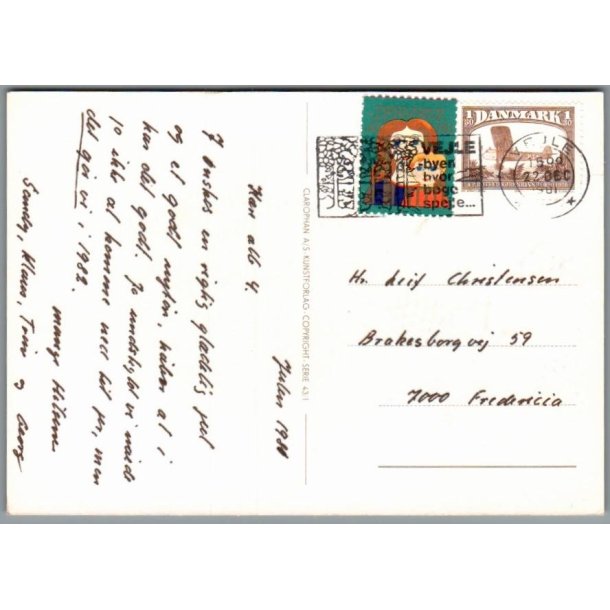 Julen 1981
Kære alle 4.
I ønskes en rigtig glædelig jul
og et godt nytår, håber at I
har det godt. Jo undskyld vi nåede
jo ikke at komme ned til jer, men
det gør vi i 1982.
mange hilsner
Klaus, Toni og Georg
CLAROPHAN A/S KUNSTFORLAG - COPYRIGHT SERIE 43:1
VEJLE
byen
hvor
bøge
spejle...
DANMARK
1 80
1 80
22 DEC
Hr. Leif Christensen
Brakesborgvej 59
7000 Fredericia